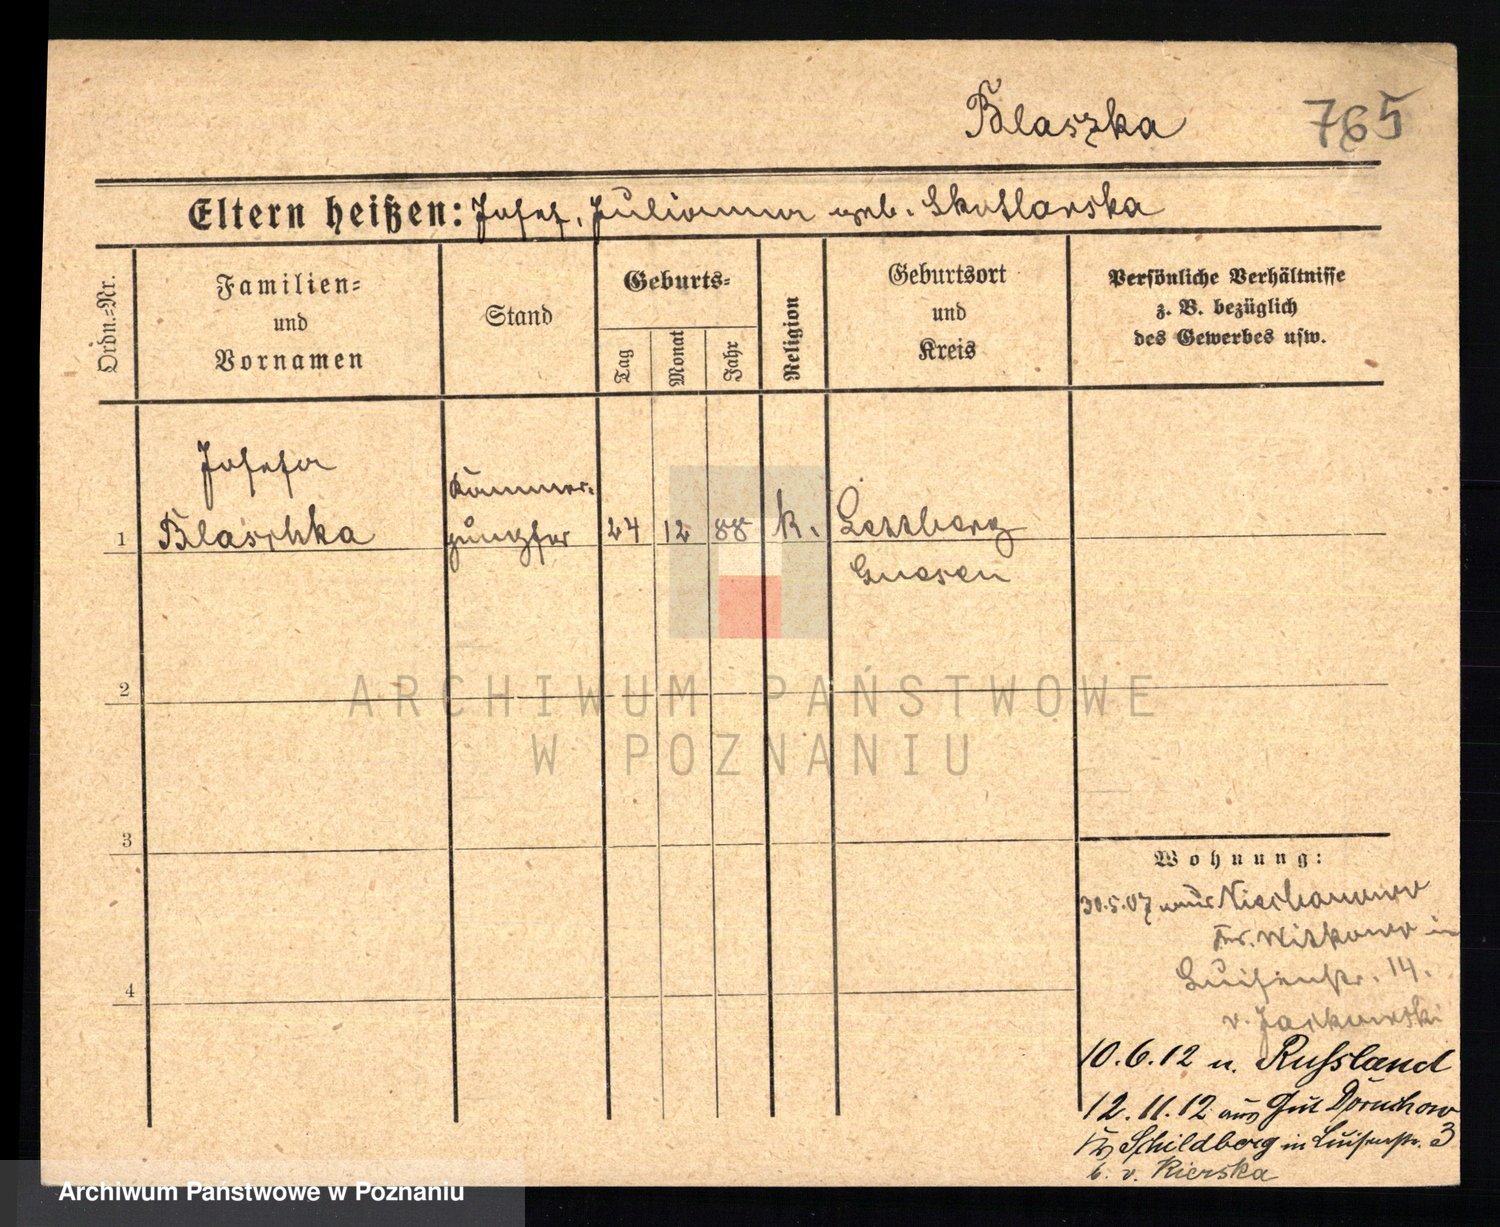 Blaszka 765
Eltern heißen: Josef, Julianna geb. Skotlarska
Ordn.-Nr.
Familien-
und
Vornamen
Stand
Geburts-
Tag
Monat
Jahr
Religion
Geburtsort
und
Kreis
Persönliche Verhältnisse
z. B. bezüglich
des Gewerbes usw.
Josefa
Kammer-
1 Blaschka jungfer 24 12 88 k.
Gnesen
2
ARCHIWUM PAŃSTWOWE
W POZNANIU
3
Wohnung:
30.5.07 aus Niechanowo
Kr. Witkowo in
4
Luisenstr. 14.
v. Jackowski
10.6.12 n. Russland
12.11.12 aus Gut Doruchow
Kr Schildberg in Luisenstr. 3
b. v. Rierska
Archiwum Państwowe w Poznaniu